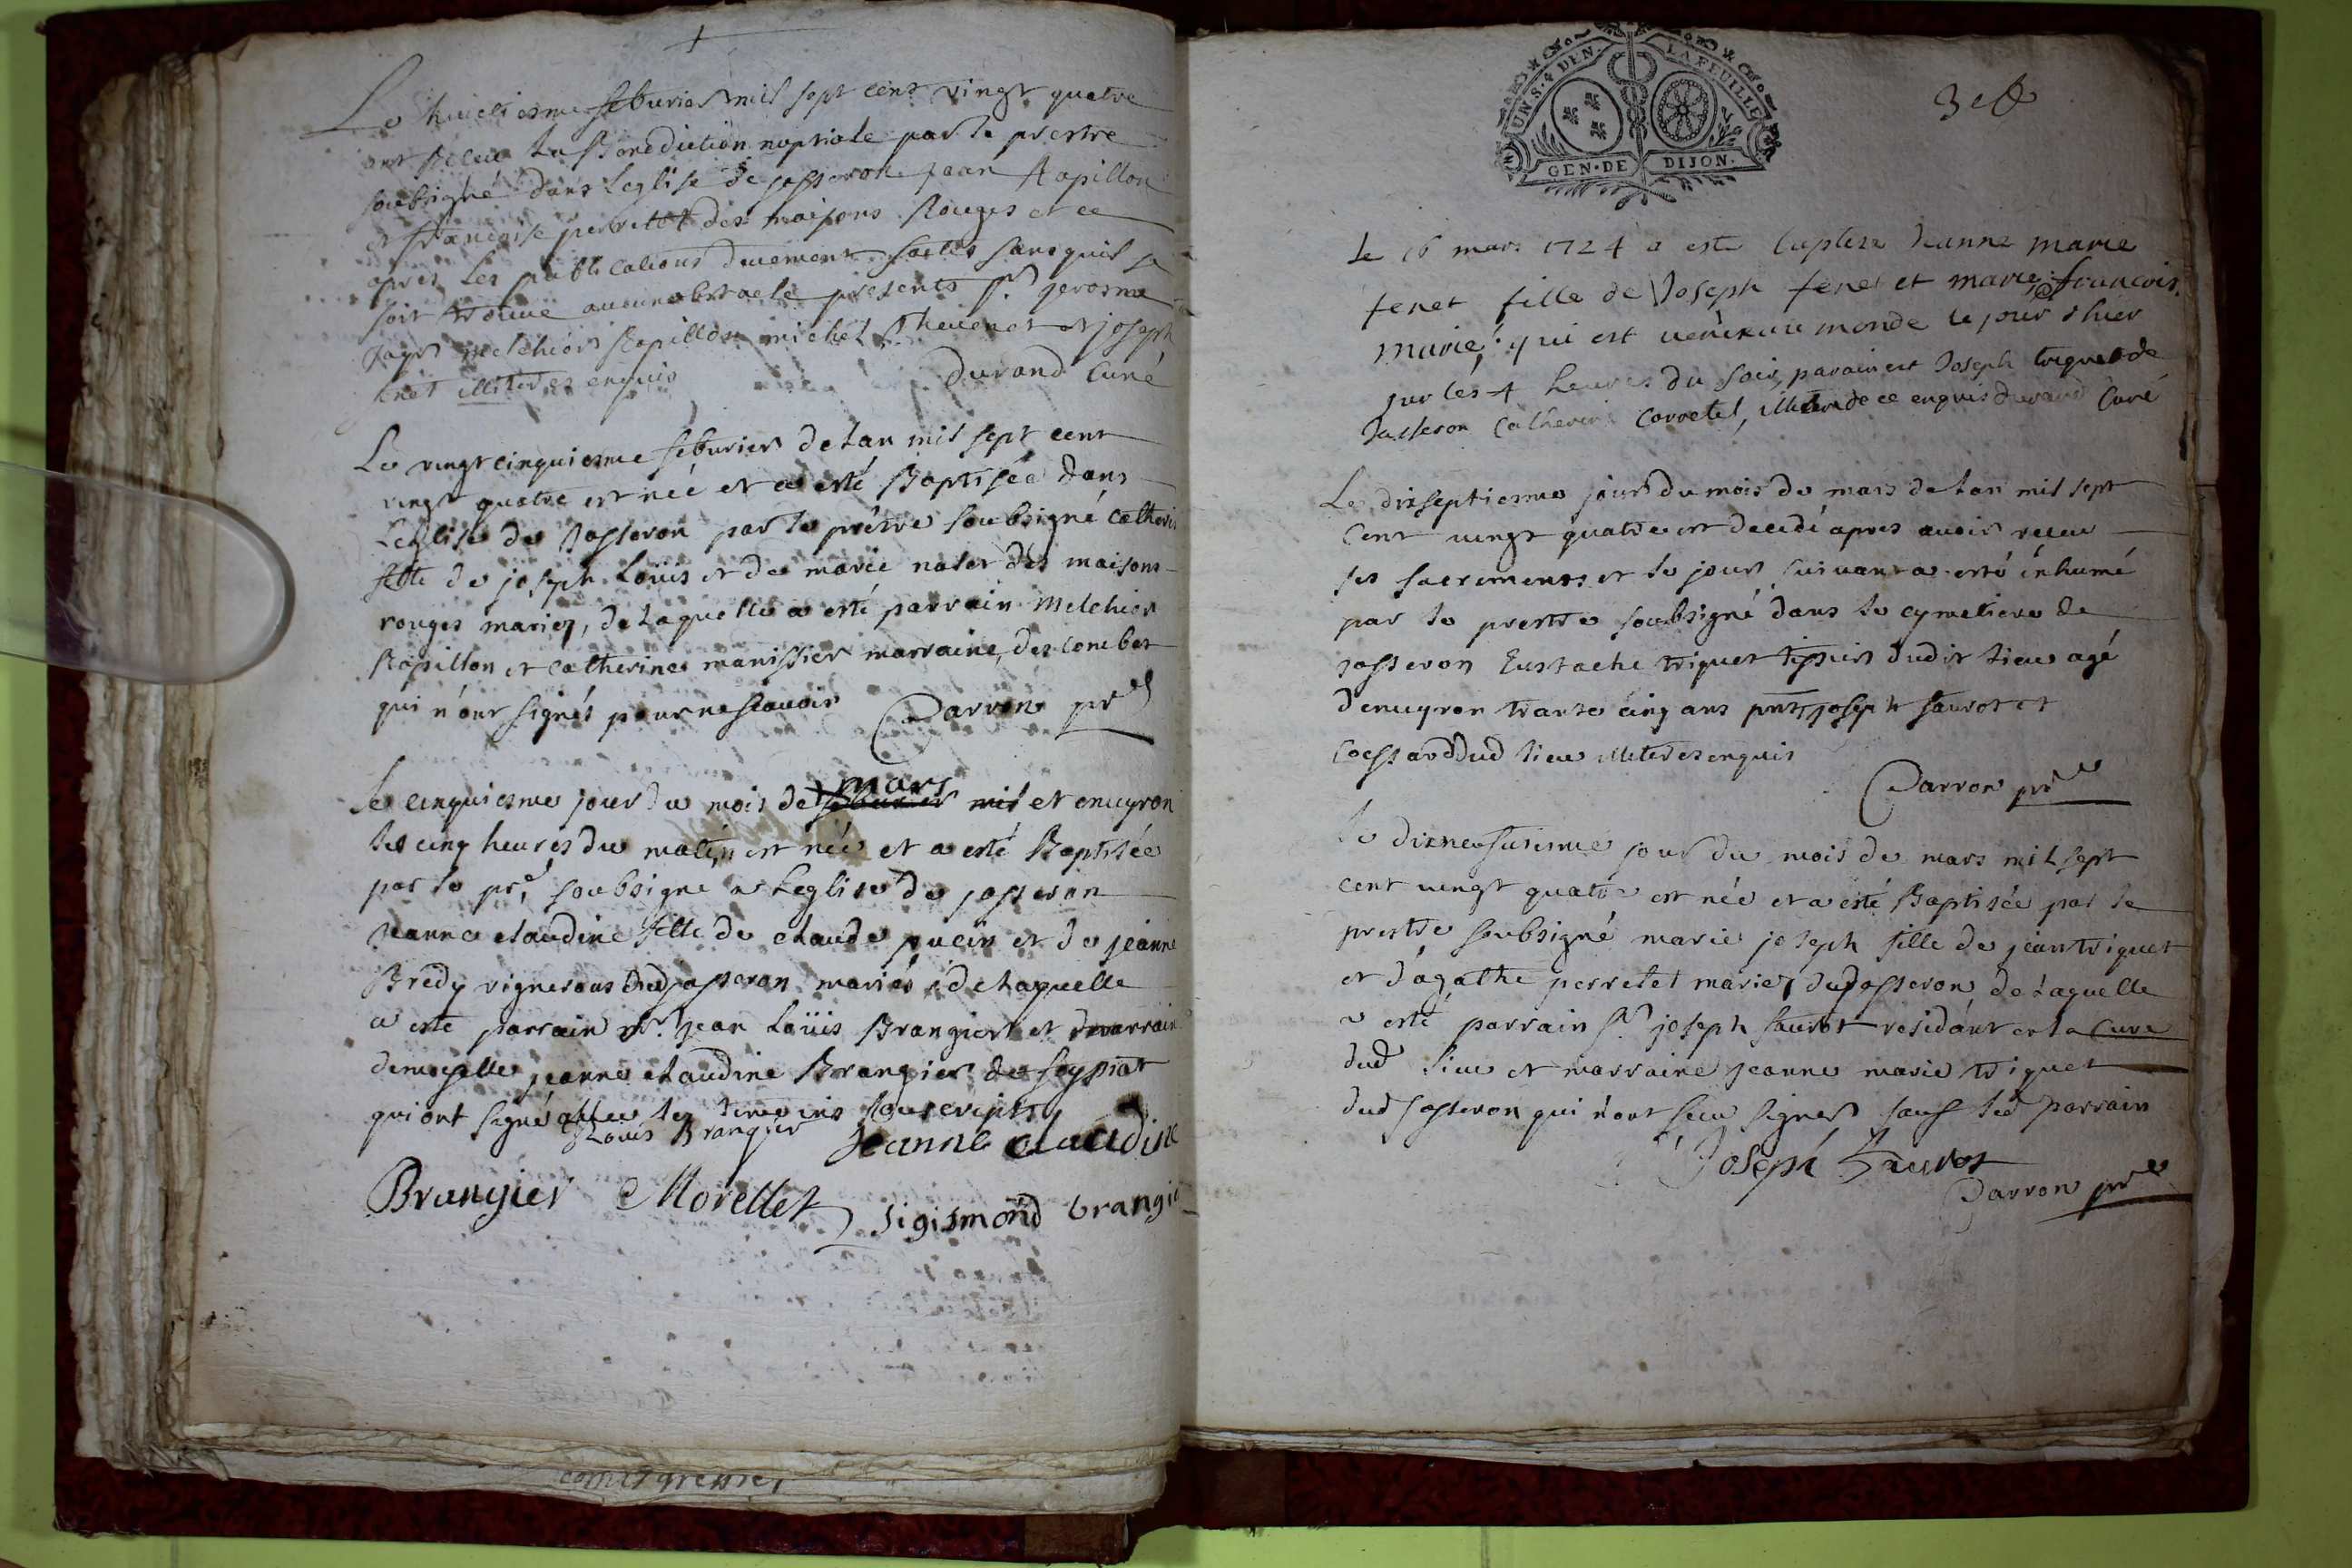 Le huictiesme feburier mil sept cent vingt quatre
ont receu la Benediction nuptiale par le prestre
soubsigné dans Leglise de Jasseron Jean Rapillon
et francoise perretet des maisons Rouges et ce
apres Les publications duement faites sans quil se
soit trouvé aucun obstacle presents Sr jerosme
melchior Rapillon michel Thevenet et joseph
illiteres enquis Durand Curé
Le vingt cinquiesme feburier de lan mil sept cent
vingt quatre est née et a esté Baptisée dans
Leglise de Jasseron par le prêtre soubsigné catheri
fille de joseph Loüis et de marie des maisons
rouges mariez, de laquelle a esté parrain melchior
Rapillon et catherine manissier marraine, des combes
qui n'ont signés pour ne scavoir Carron pre
Le cinquiesme jour du mois de feburier mars mil et enuyron
les cinq heures du matin est née et a esté Baptisée
par le pre, soubsigné a Leglise de jasseron
jeanne claudine fille de claude pucin et de jeanne
Bredy vignerons dud jasseron mariés, de laquelle
a esté parrain Sr. jean Loüis Brangier et marrain
demoiselle jeanne claudine Brangier de seyssiat
qui ont signé avec les temoins souscripts
Louis Brangier Jeanne claudine
Brangier Morellet sigismond brangie
UN S. 4 DEN. LA FEUILLE
GEN. DE DIJON.
Le 16 mars 1724 a esté baptisée Jeanne marie
tenet fille de Joseph tenet et marie francois
mariés qui est venüe au monde le jour d'hier
sur les 4 heures du soir, parain est Joseph triquet de
Jasseron Catherine Corretel, illiteres de ce enquis Durand Curé
Le dixseptiesme jour du mois de mars de lan mil sept
Cent vingt quatre est decedé apres avoir receu
ses sacrements et le jour suivant a esté inhumé
par le prestre soubsigné dans le cymetiere de
jasseron Eustache triquet tissier dudit lieu agé
denuyron trante cinq ans pnts joseph sauvot et
dud lieu illiteres enquis
Carron pre
Le dixneufuiesme jour du mois de mars mil sept
cent vingt quatre est née et a esté Baptisée par le
prestre soubsigné marie joseph fille de jean triquet
et d'agathe perretet mariez dud jasseron de laquelle
a esté parrain Sr joseph sauvot residant en la cure
dud lieu et marraine jeanne marie triquet
dud jasseron qui n'ont sceu signer sauf led parrain
Joseph Sauvot
Carron pre